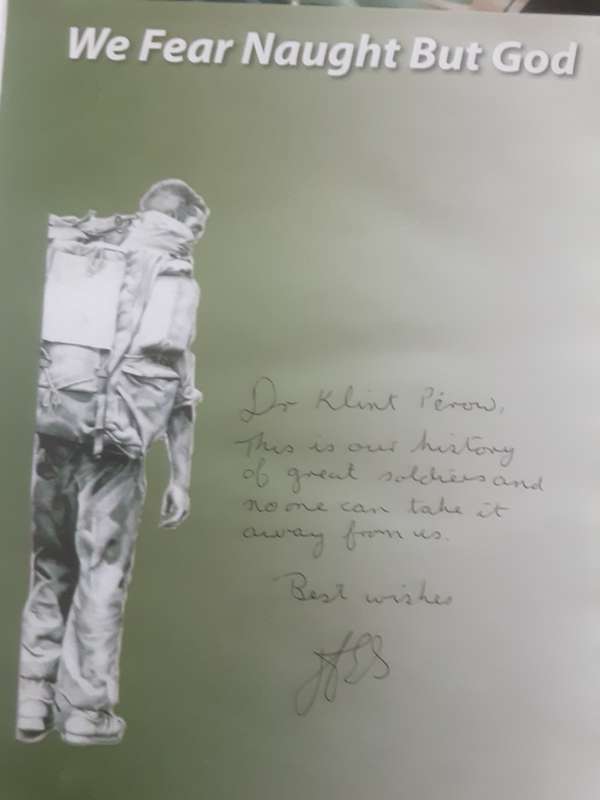 We Fear Naught But God
Dr Klint Pérow,
This is our history
of great soldiers and
no one can take it
away from us.
Best wishes